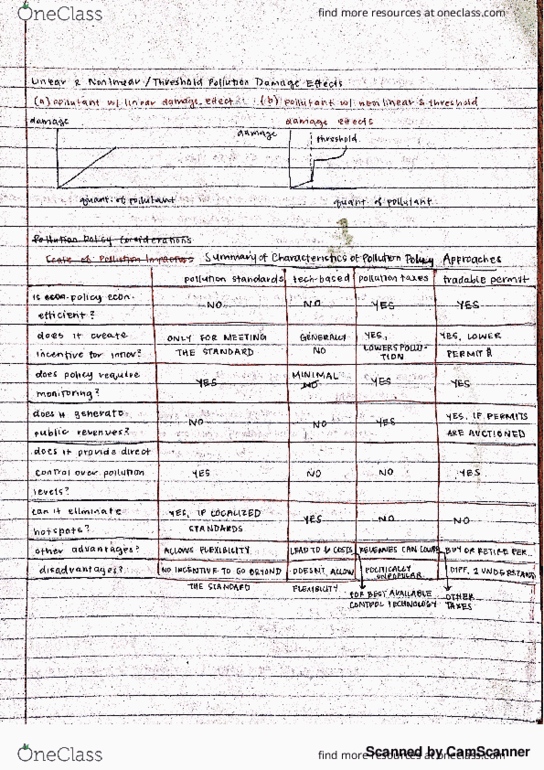 OneClass
find more resources at oneclass.com
Linear & Nonlinear/Threshold Pollution Damage Effects
(a) pollutant w/ linear damage effect (b) pollutant w/ nonlinear & threshold
damage effects
damage
damage
threshold
quant. of pollutant
quant of pollutant
Pollution Policy Considerations
Scale of Pollution Impacts Summary of Characteristics of Pollution Policy Approaches
pollution standards tech-based pollution taxes tradable permit
is econ. policy econ. efficient?
NO NO YES YES
does it create incentive for innov?
ONLY FOR MEETING THE STANDARD
GENERALLY NO
YES, LOWERS POLLUTION
YES, LOWER PERMIT $
does policy require monitoring?
YES
MINIMAL
NO
YES
YES
does it generate public revenues?
NO
NO
YES
YES, IF PERMITS ARE AUCTIONED
does it provide direct control over pollution levels?
YES NO NO YES
can it eliminate hotspots?
YES, IF LOCALIZED STANDARDS
YES
NO
NO
other advantages?
ALLOWS FLEXIBILITY
LEAD TO ↓ COSTS
REVENUES CAN
BUY OR RETIRE PER
disadvantages?
NO INCENTIVE TO GO BEYOND THE STANDARD
DOESN'T ALLOW FLEXIBILITY
POLITICALLY UNPOPULAR
DIFF. 2 UNDERSTAND
FOR BEST AVAILABLE CONTROL TECHNOLOGY
OTHER TAXES
OneClass
find more resources at oneclass.com
Scanned by CamScanner